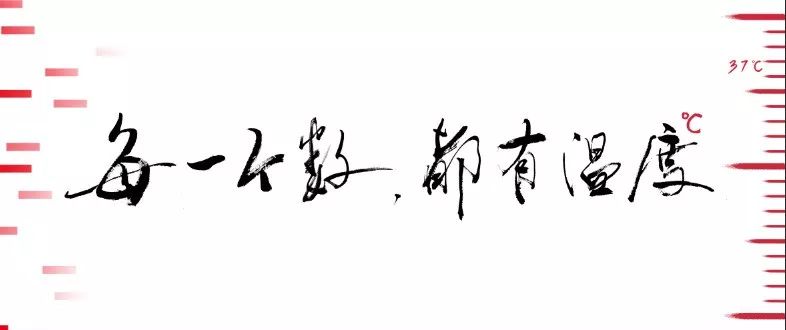 37℃
每一个数，都有温度℃